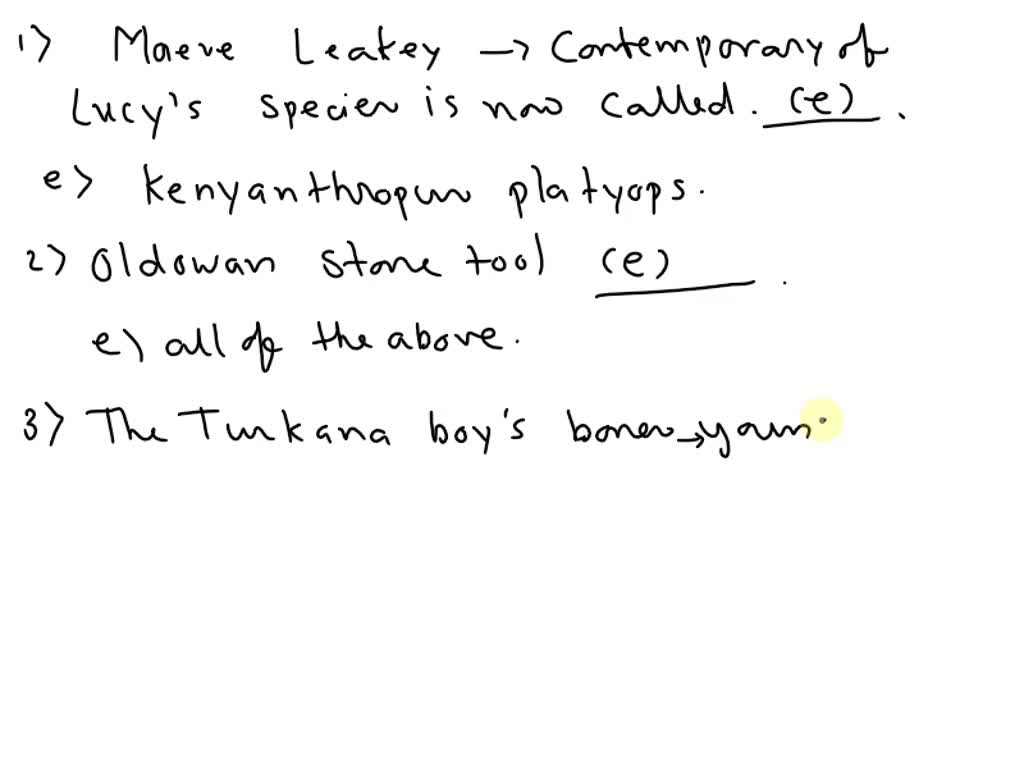 1) Maeve Leakey → Contemporary of
Lucy's species is now called. (e).
e) Kenyanthropus platyops.
2) Oldowan stone tool (e).
e) all of the above.
3) The Turkana boy's bones →